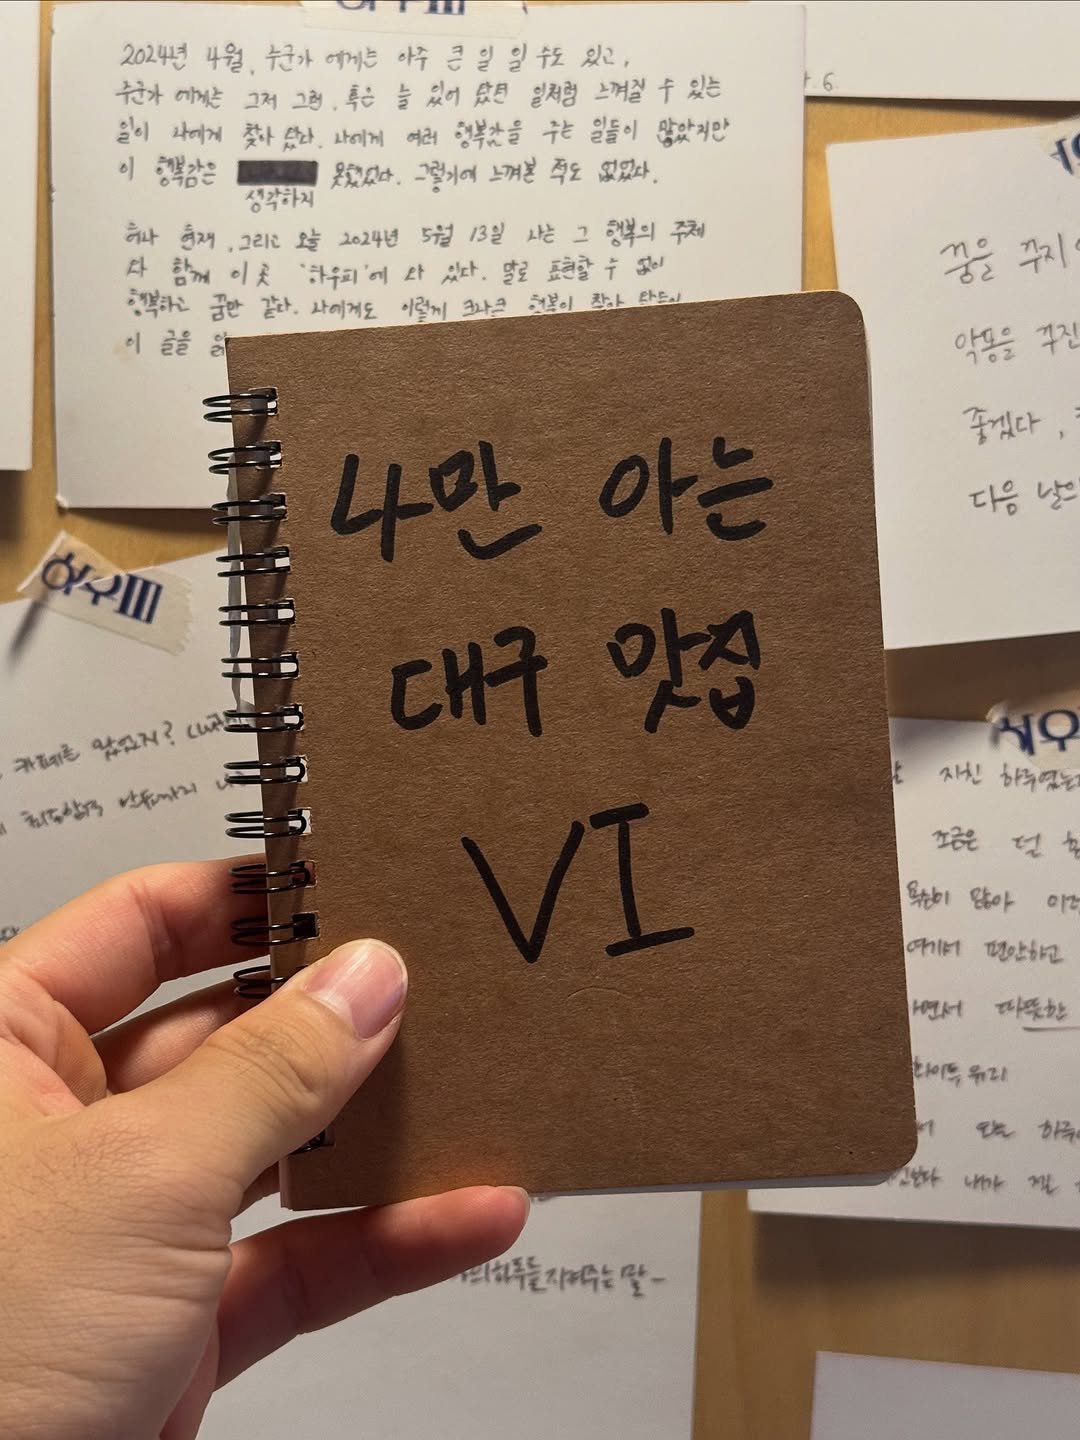 하우피
2024년 4월, 누군가 에게는 아주 큰 일 일 수도 있고,
누군가 에게는 그저 그런, 혹은 늘 있어 왔던 일처럼 느껴질 수 있는
일이 나에게 찾아 왔다. 나에게 여러 행복감을 주는 일들이 많았지만
이 행복감은 못했었다. 그렇기에 느껴본 적도 없었다.
생각하지
허나 현재, 그리고 오늘 2024년 5월 13일 나는 그 행복의 주체
와 함께 이 곳 '하우피'에 와 있다. 말로 표현할 수 없이
행복하고 꿈만 같다. 나에게도 이렇게 크나큰 행복이 찾아
이 글을
6.
꿈을 꾸지
악몽을 꾸진
좋겠다,
다음 날의
나만 아는
대구 맛집
VI
하우피
카페를 왔었지?
하우피
지친 하루였는데
조금은 덜
많아
여기서 편안하고
면서 따뜻한
화이투 위리
하루
내가
의 하루를 지켜주는 말~